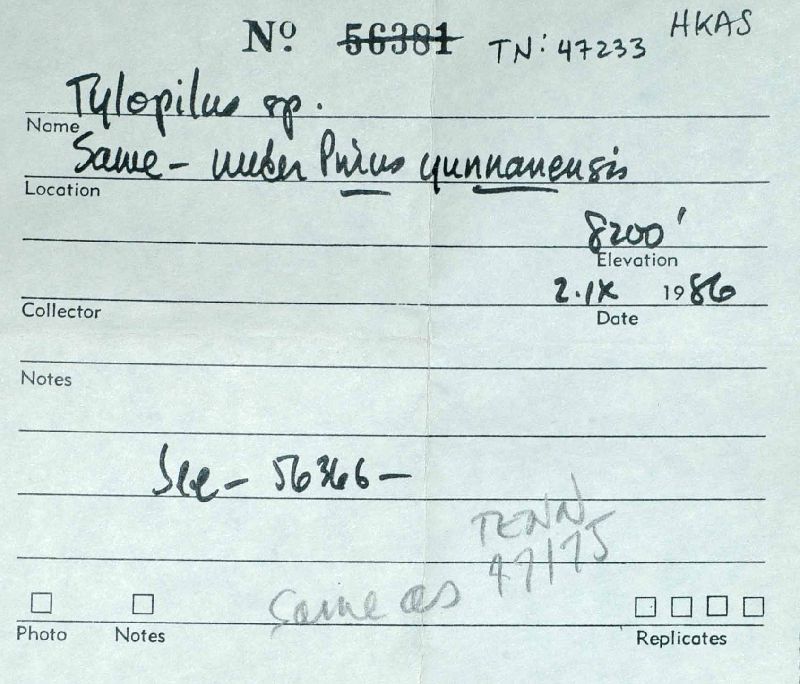 Nº 56381 TN: 47233 HKAS
Tylopilus sp.
Name
Same - under Pinus yunnanensis
Location
8200'
Elevation
2.IX 1986
Collector Date
Notes
See - 56366 -
TENN
47175
Same as
Photo Notes Replicates